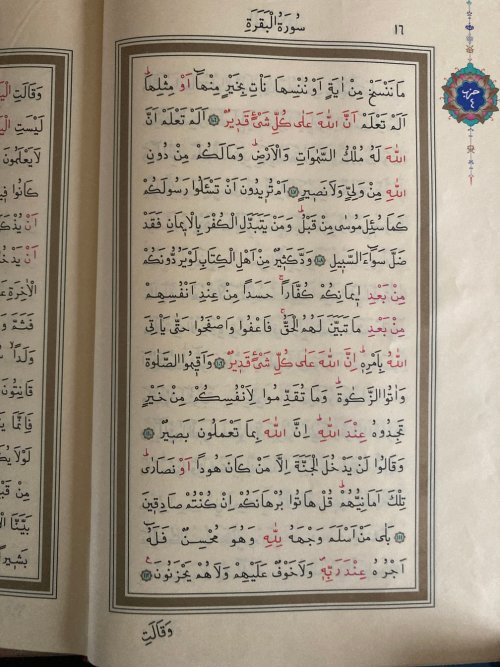 ١٦
سُورَةُ الْبَقَرَةِ
مَا نَنْسَخْ مِنْ اٰيَةٍ اَوْ نُنْسِهَا نَأْتِ بِخَيْرٍ مِنْهَٓا اَوْ مِثْلِهَاۜ
اَلَمْ تَعْلَمْ اَنَّ اللّٰهَ عَلٰى كُلِّ شَيْءٍ قَد۪يرٌ ﴿١٠٦﴾ اَلَمْ تَعْلَمْ اَنَّ
اللّٰهَ لَهُ مُلْكُ السَّمٰوَاتِ وَالْاَرْضِۜ وَمَا لَكُمْ مِنْ دُونِ
اللّٰهِ مِنْ وَلِيٍّ وَلَا نَص۪يرٍ ﴿١٠٧﴾ اَمْ تُر۪يدُونَ اَنْ تَسْـَٔلُوا رَسُولَكُمْ
كَمَا سُئِلَ مُوسٰى مِنْ قَبْلُۜ وَمَنْ يَتَبَدَّلِ الْكُفْرَ بِالْا۪يمَانِ فَقَدْ
ضَلَّ سَوَٓاءَ السَّب۪يلِ ﴿١٠٨﴾ وَدَّ كَث۪يرٌ مِنْ اَهْلِ الْكِتَابِ لَوْ يَرُدُّونَكُمْ
مِنْ بَعْدِ ا۪يمَانِكُمْ كُفَّاراًۚ حَسَداً مِنْ عِنْدِ اَنْفُسِهِمْ
مِنْ بَعْدِ مَا تَبَيَّنَ لَهُمُ الْحَقُّۚ فَاعْفُوا وَاصْفَحُوا حَتّٰى يَأْتِيَ
اللّٰهُ بِاَمْرِه۪ۜ اِنَّ اللّٰهَ عَلٰى كُلِّ شَيْءٍ قَد۪يرٌ ﴿١٠٩﴾ وَاَق۪يمُوا الصَّلٰوةَ
وَاٰتُوا الزَّكٰوةَۜ وَمَا تُقَدِّمُوا لِاَنْفُسِكُمْ مِنْ خَيْرٍ
تَجِدُوهُ عِنْدَ اللّٰهِۜ اِنَّ اللّٰهَ بِمَا تَعْمَلُونَ بَص۪يرٌ ﴿١١٠﴾
وَقَالُوا لَنْ يَدْخُلَ الْجَنَّةَ اِلَّا مَنْ كَانَ هُوداً اَوْ نَصَارٰىۜ
تِلْكَ اَمَانِيُّهُمْۜ قُلْ هَاتُوا بُرْهَانَكُمْ اِنْ كُنْتُمْ صَادِق۪ينَ
﴿١١١﴾ بَلٰى مَنْ اَسْلَمَ وَجْهَهُ لِلّٰهِ وَهُوَ مُحْسِنٌ فَلَهُٓ
اَجْرُهُ عِنْدَ رَبِّه۪ۖ وَلَا خَوْفٌ عَلَيْهِمْ وَلَا هُمْ يَحْزَنُونَ۟ ﴿١١٢﴾
وَقَالَتِ
حزب
٤
وَقَالَتِ
لَيْسَتِ
لَا يَعْلَمُونَ
كَانُوا
اَنْ يُذْكَ
اَنْ يَدْخُ
الْاٰخِرَةِ
فَثَمَّ
وَلَداًۙ
قَانِتُونَ
فَاِنَّمَا
لَوْلَا
مِنْ
بَيَّنَّا
بَش۪يراً